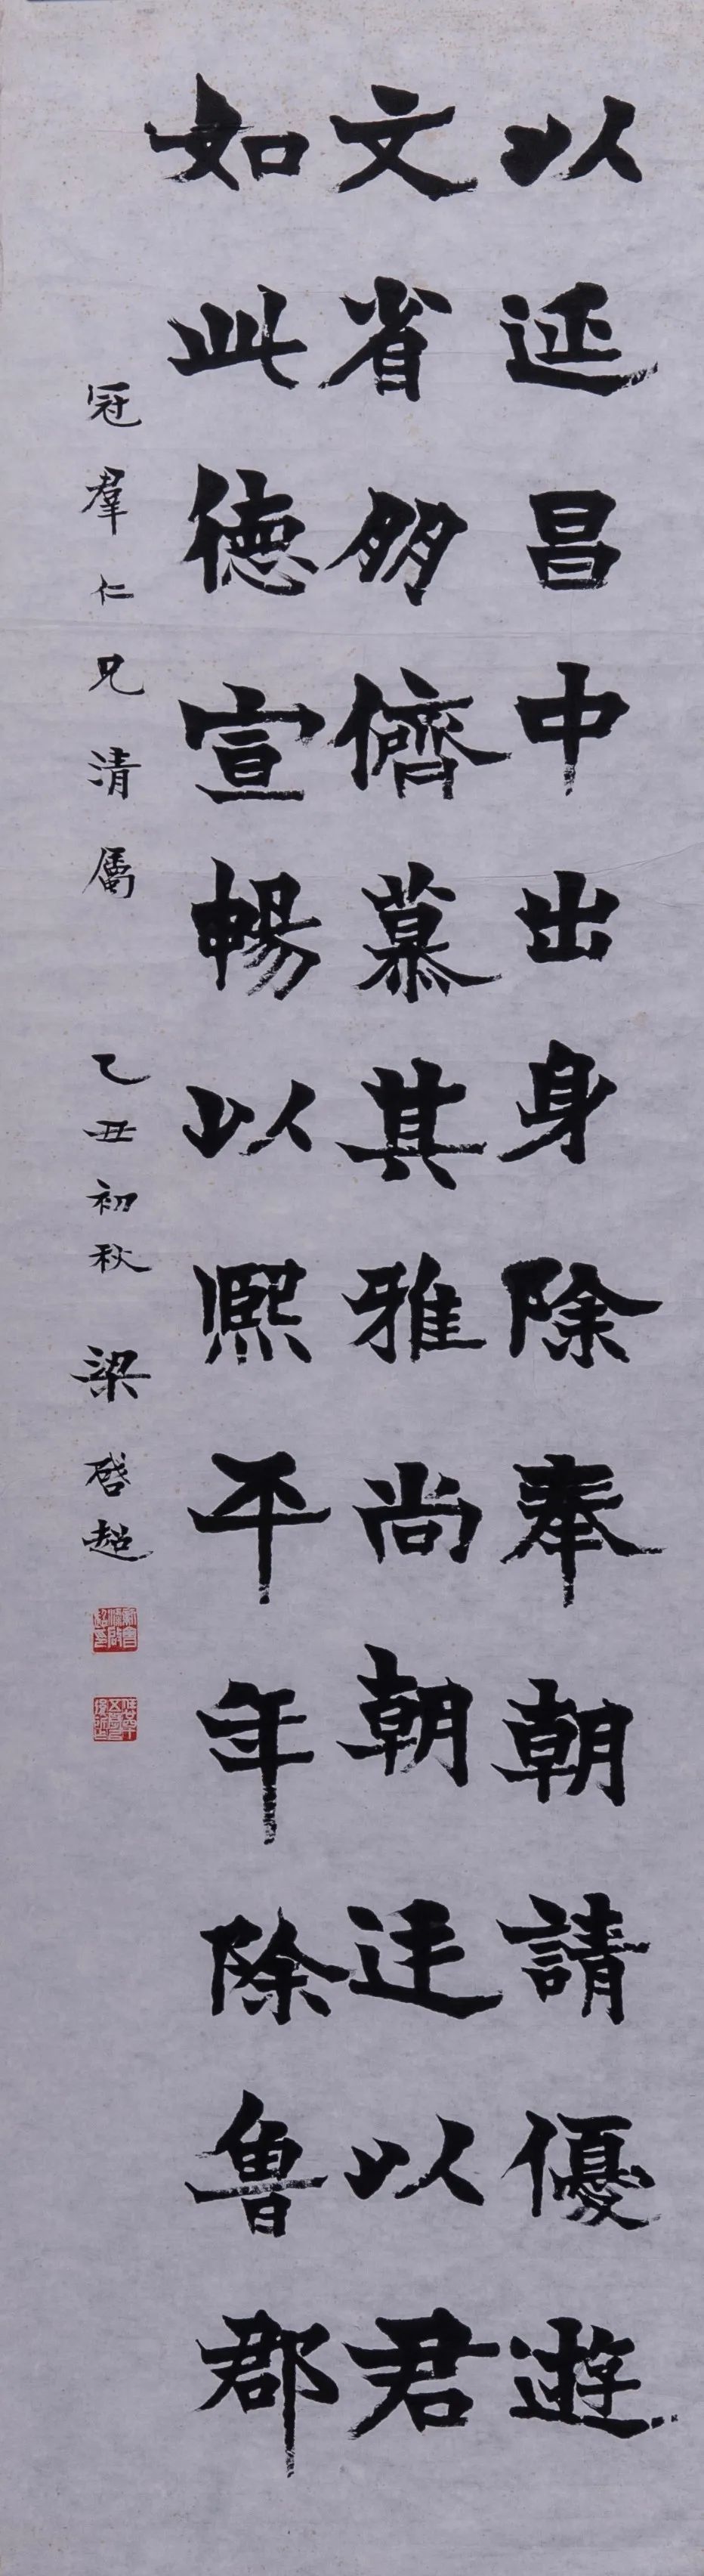 以延昌中出身除奉朝請優遊
文省朋儕慕其雅尚朝廷以君
如此德宣暢以熙平年除魯郡
冠羣仁兄清屬 乙丑初秋 梁啓超